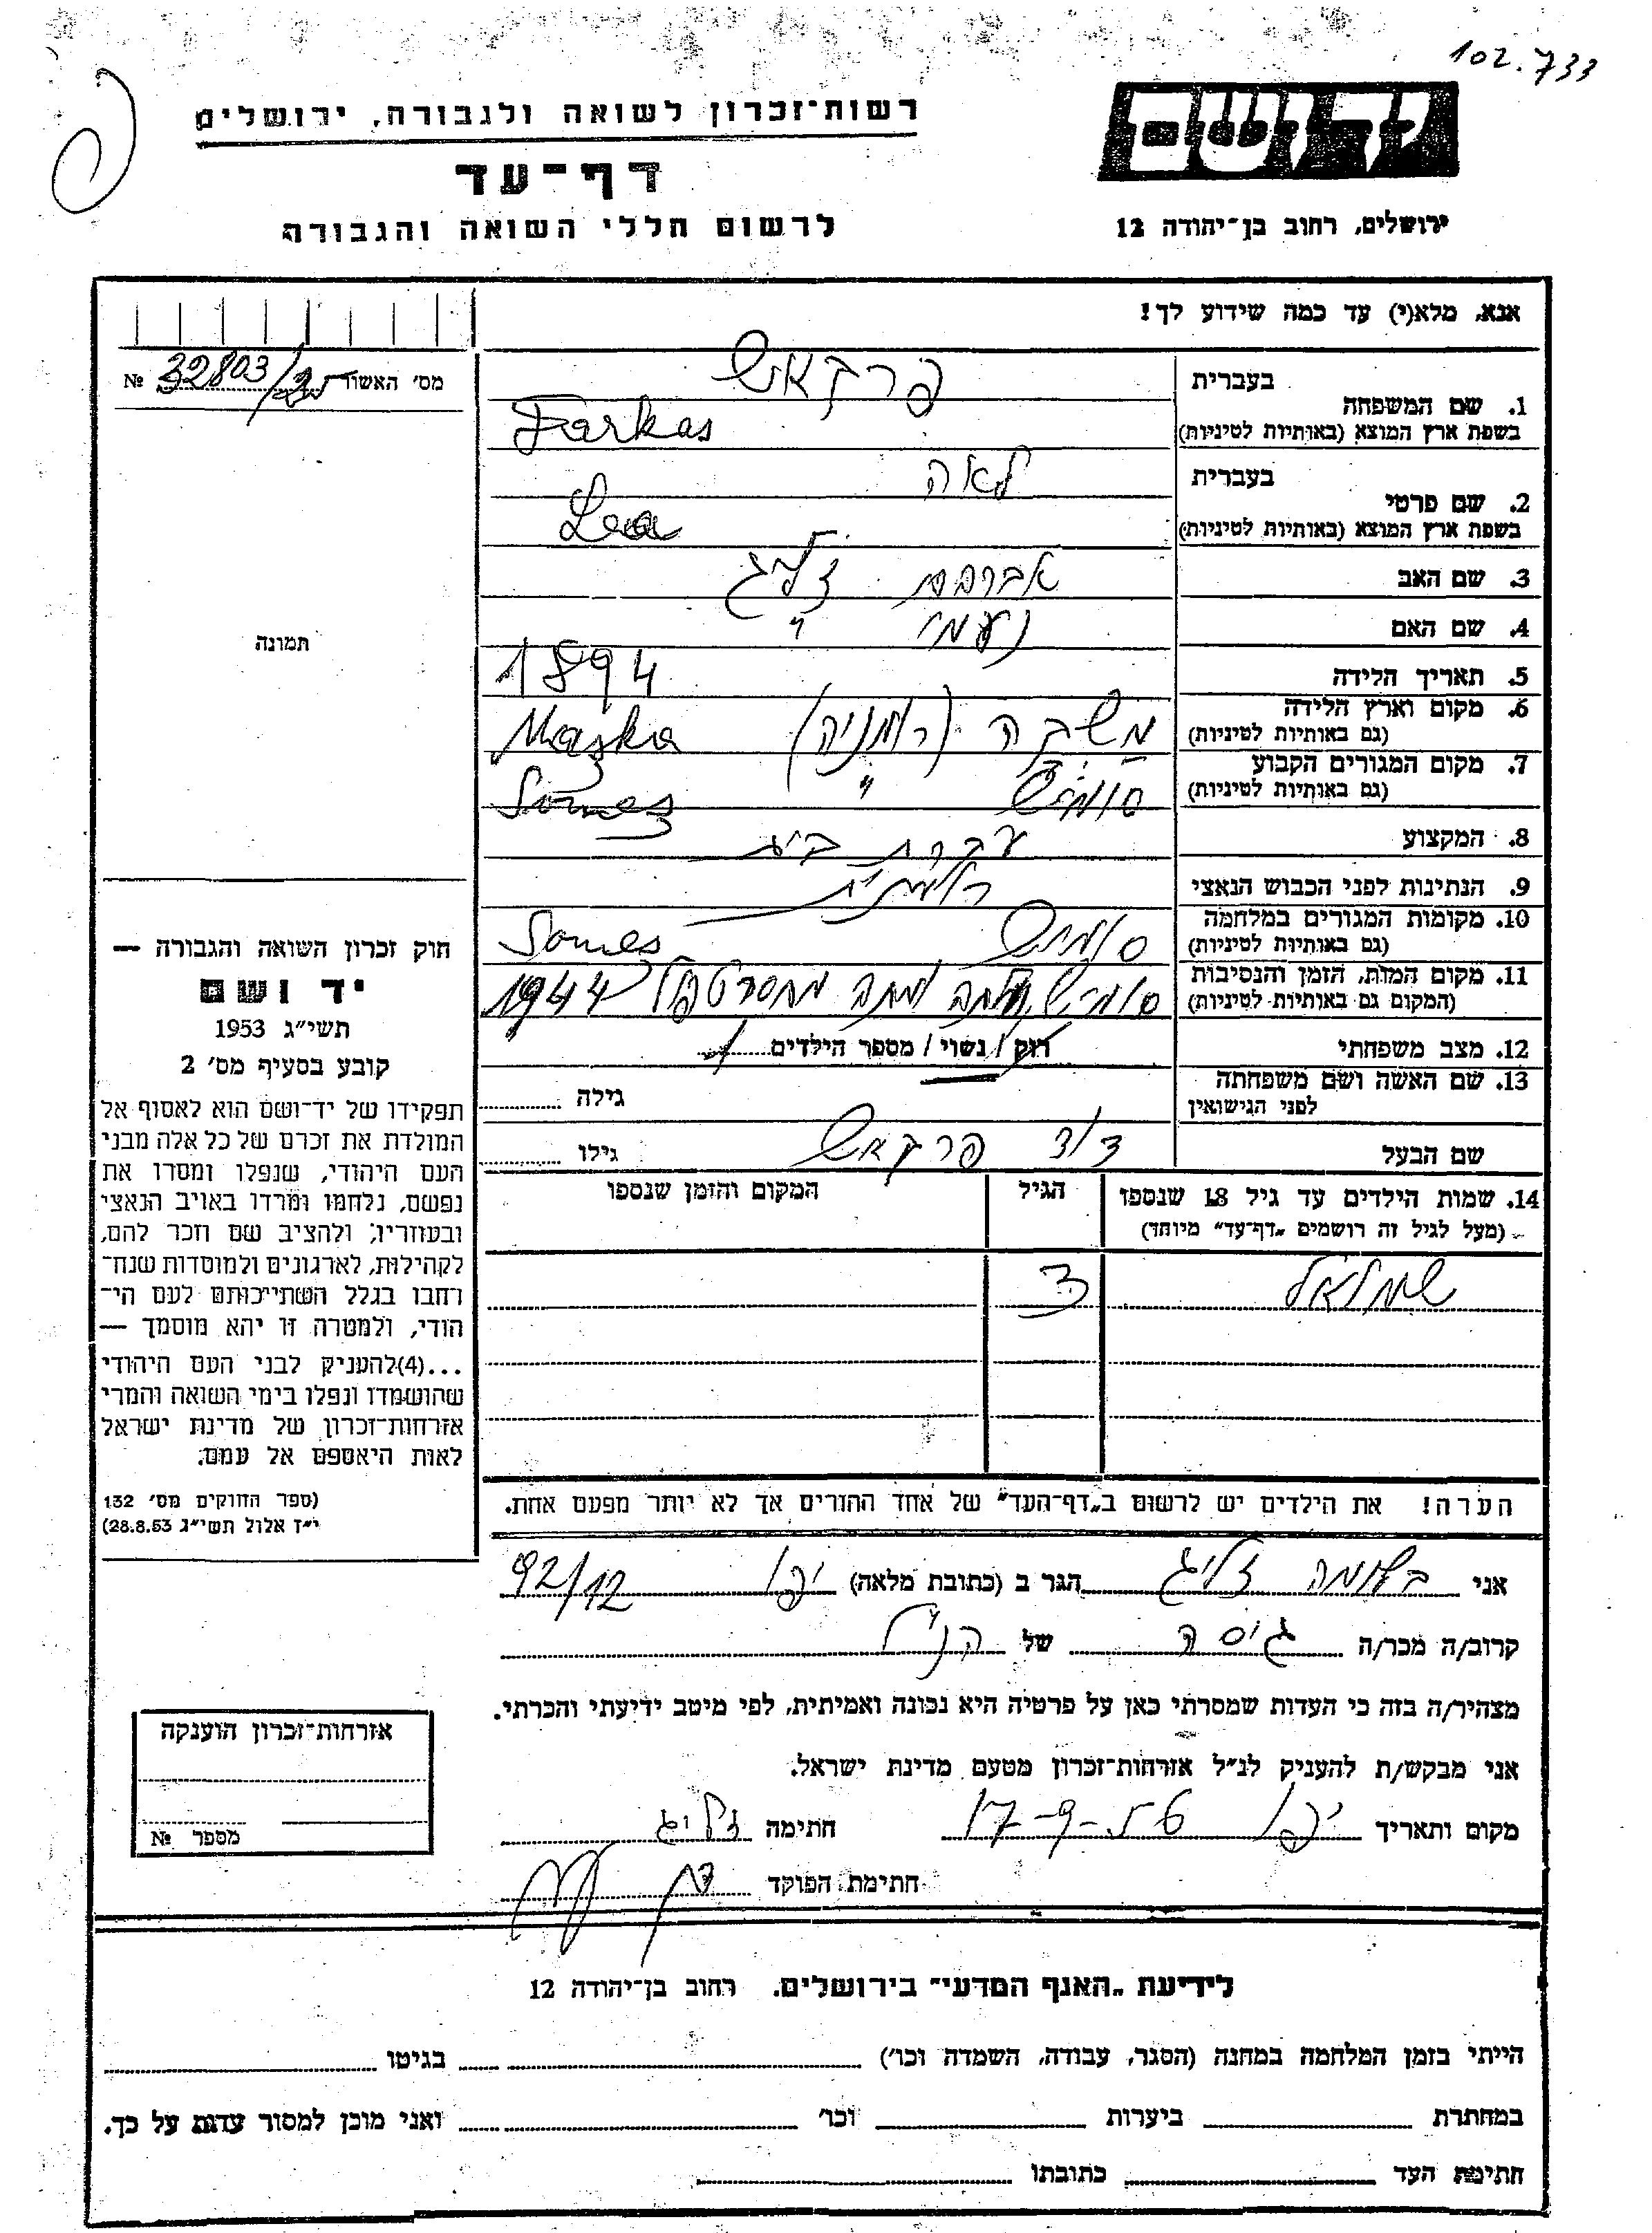 102.733
רשות־זכרון לשואה ולגבורה, ירושלים
יד ושם
דף־עד
לרשום חללי השואה והגבורה
ירושלים, רחוב בן־יהודה 12
אנא, מלא(י) עד כמה שידוע לך!
מס׳ האשור № 32803/25
תמונה
בעברית פרקאש
1. שם המשפחה
בשפת ארץ המוצא (באותיות לטיניות) Farkas
בעברית לאה
2. שם פרטי
בשפת ארץ המוצא (באותיות לטיניות) Lea
3. שם האב אברהם זליג
4. שם האם נעמי "
5. תאריך הלידה 1894
6. מקום וארץ הלידה משקה (רומניה) Maszka
(גם באותיות לטיניות)
7. מקום המגורים הקבוע סומש " Somes
(גם באותיות לטיניות)
8. המקצוע עקרת בית
9. הנתינות לפני הכבוש הנאצי רומנית
10. מקומות המגורים במלחמה סומש Somes
(גם באותיות לטיניות)
11. מקום המות, הזמן והנסיבות 1944
(המקום גם באותיות לטיניות)
12. מצב משפחתי רוק / נשוי / מספר הילדים 1
13. שם האשה ושם משפחתה גילה
לפני הנישואין
שם הבעל דוד פרקאש גילו
14. שמות הילדים עד גיל 18 שנספו הגיל המקום והזמן שנספו
(מעל לגיל זה רושמים „דף־עד” מיוחד)
שמואל 3
הערה! את הילדים יש לרשום ב„דף־העד” של אחד ההורים אך לא יותר מפעם אחת.
חוק זכרון השואה והגבורה —
יד ושם
תשי״ג 1953
קובע בסעיף מס׳ 2
תפקידו של יד־ושם הוא לאסוף אל
המולדת את זכרם של כל אלה מבני
העם היהודי, שנפלו ומסרו את
נפשם, נלחמו ומרדו באויב הנאצי
ובעוזריו, ולהציב שם וזכר להם,
לקהילות, לארגונים ולמוסדות שנח־
רחבו בגלל השתייכותם לעם הי־
הודי, ולמטרה זו יהא מוסמך —
...(4)להעניק לבני העם היהודי
שהושמדו ונפלו בימי השואה והמרי
אזרחות־זכרון של מדינת ישראל
לאות היאספם אל עמם.
(ספר החוקים מס׳ 132
י״ז אלול תשי״ג 28.8.53)
אני זליג הגר ב (כתובת מלאה) יפו 92/12
קרוב/ה מכר/ה גיסה של הנ״ל
מצהיר/ה בזה כי העדות שמסרתי כאן על פרטיה היא נכונה ואמיתית, לפי מיטב ידיעתי והכרתי.
אני מבקש/ת להעניק לנ״ל אזרחות־זכרון מטעם מדינת ישראל.
מקום ותאריך יפו 17-9-56 חתימה זליג
חתימת הפוקד
אזרחות־זכרון הוענקה
מספר №
לידיעת „האגף המדעי” בירושלים. רחוב בן־יהודה 12
הייתי בזמן המלחמה במחנה (הסגר, עבודה, השמדה וכו׳) בגיטו
במחתרת ביערות וכו׳ ואני מוכן למסור עדות על כך.
חתימת העד כתובתו